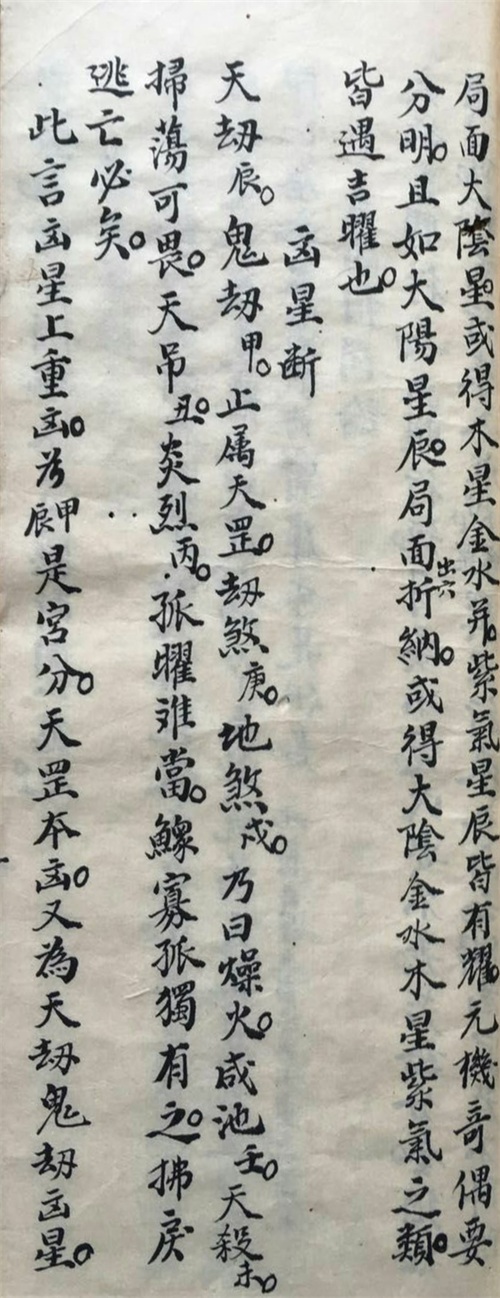 局面大陰星或得木星金水并紫氣星辰皆有耀元機奇偶要
分明。且如大陽星辰。局面出六折納。或得大陰金水木星紫氣之類。
皆遇吉曜也。
凶星斷
天刼辰。鬼刼甲。止属天罡。刼煞庚。地煞戍。乃曰燥火。咸池壬。天殺未。
掃蕩可畏。天吊丑。炎烈丙。孤曜难當。鰥寡孤獨有之。拂戾
逃亡必矣。
此言凶星上重凶。为甲辰是宮分。天罡本凶。又為天刼鬼刼凶星。